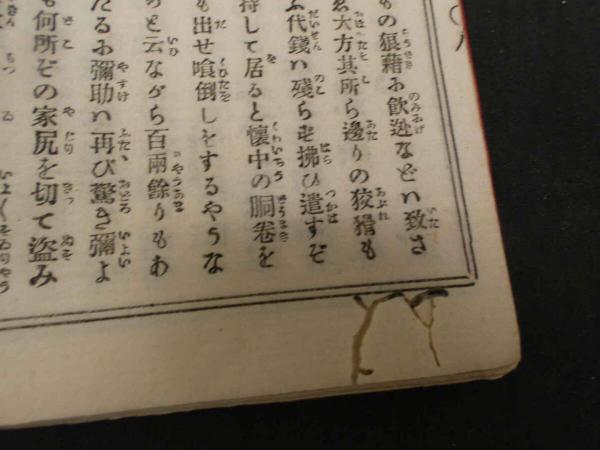 もの狼藉お飲逃などハ致さ
ゑ大方其所ら邊りの狡猾も
ふ代錢ハ殘らず拂ひ遣すぞ
持して居ると懷中の胴卷を
も出せ喰倒しをするやうな
のと云ながら百兩餘りもあ
たるお彌助ハ再び驚き彌よ
も何所ぞの家尻を切て盜み